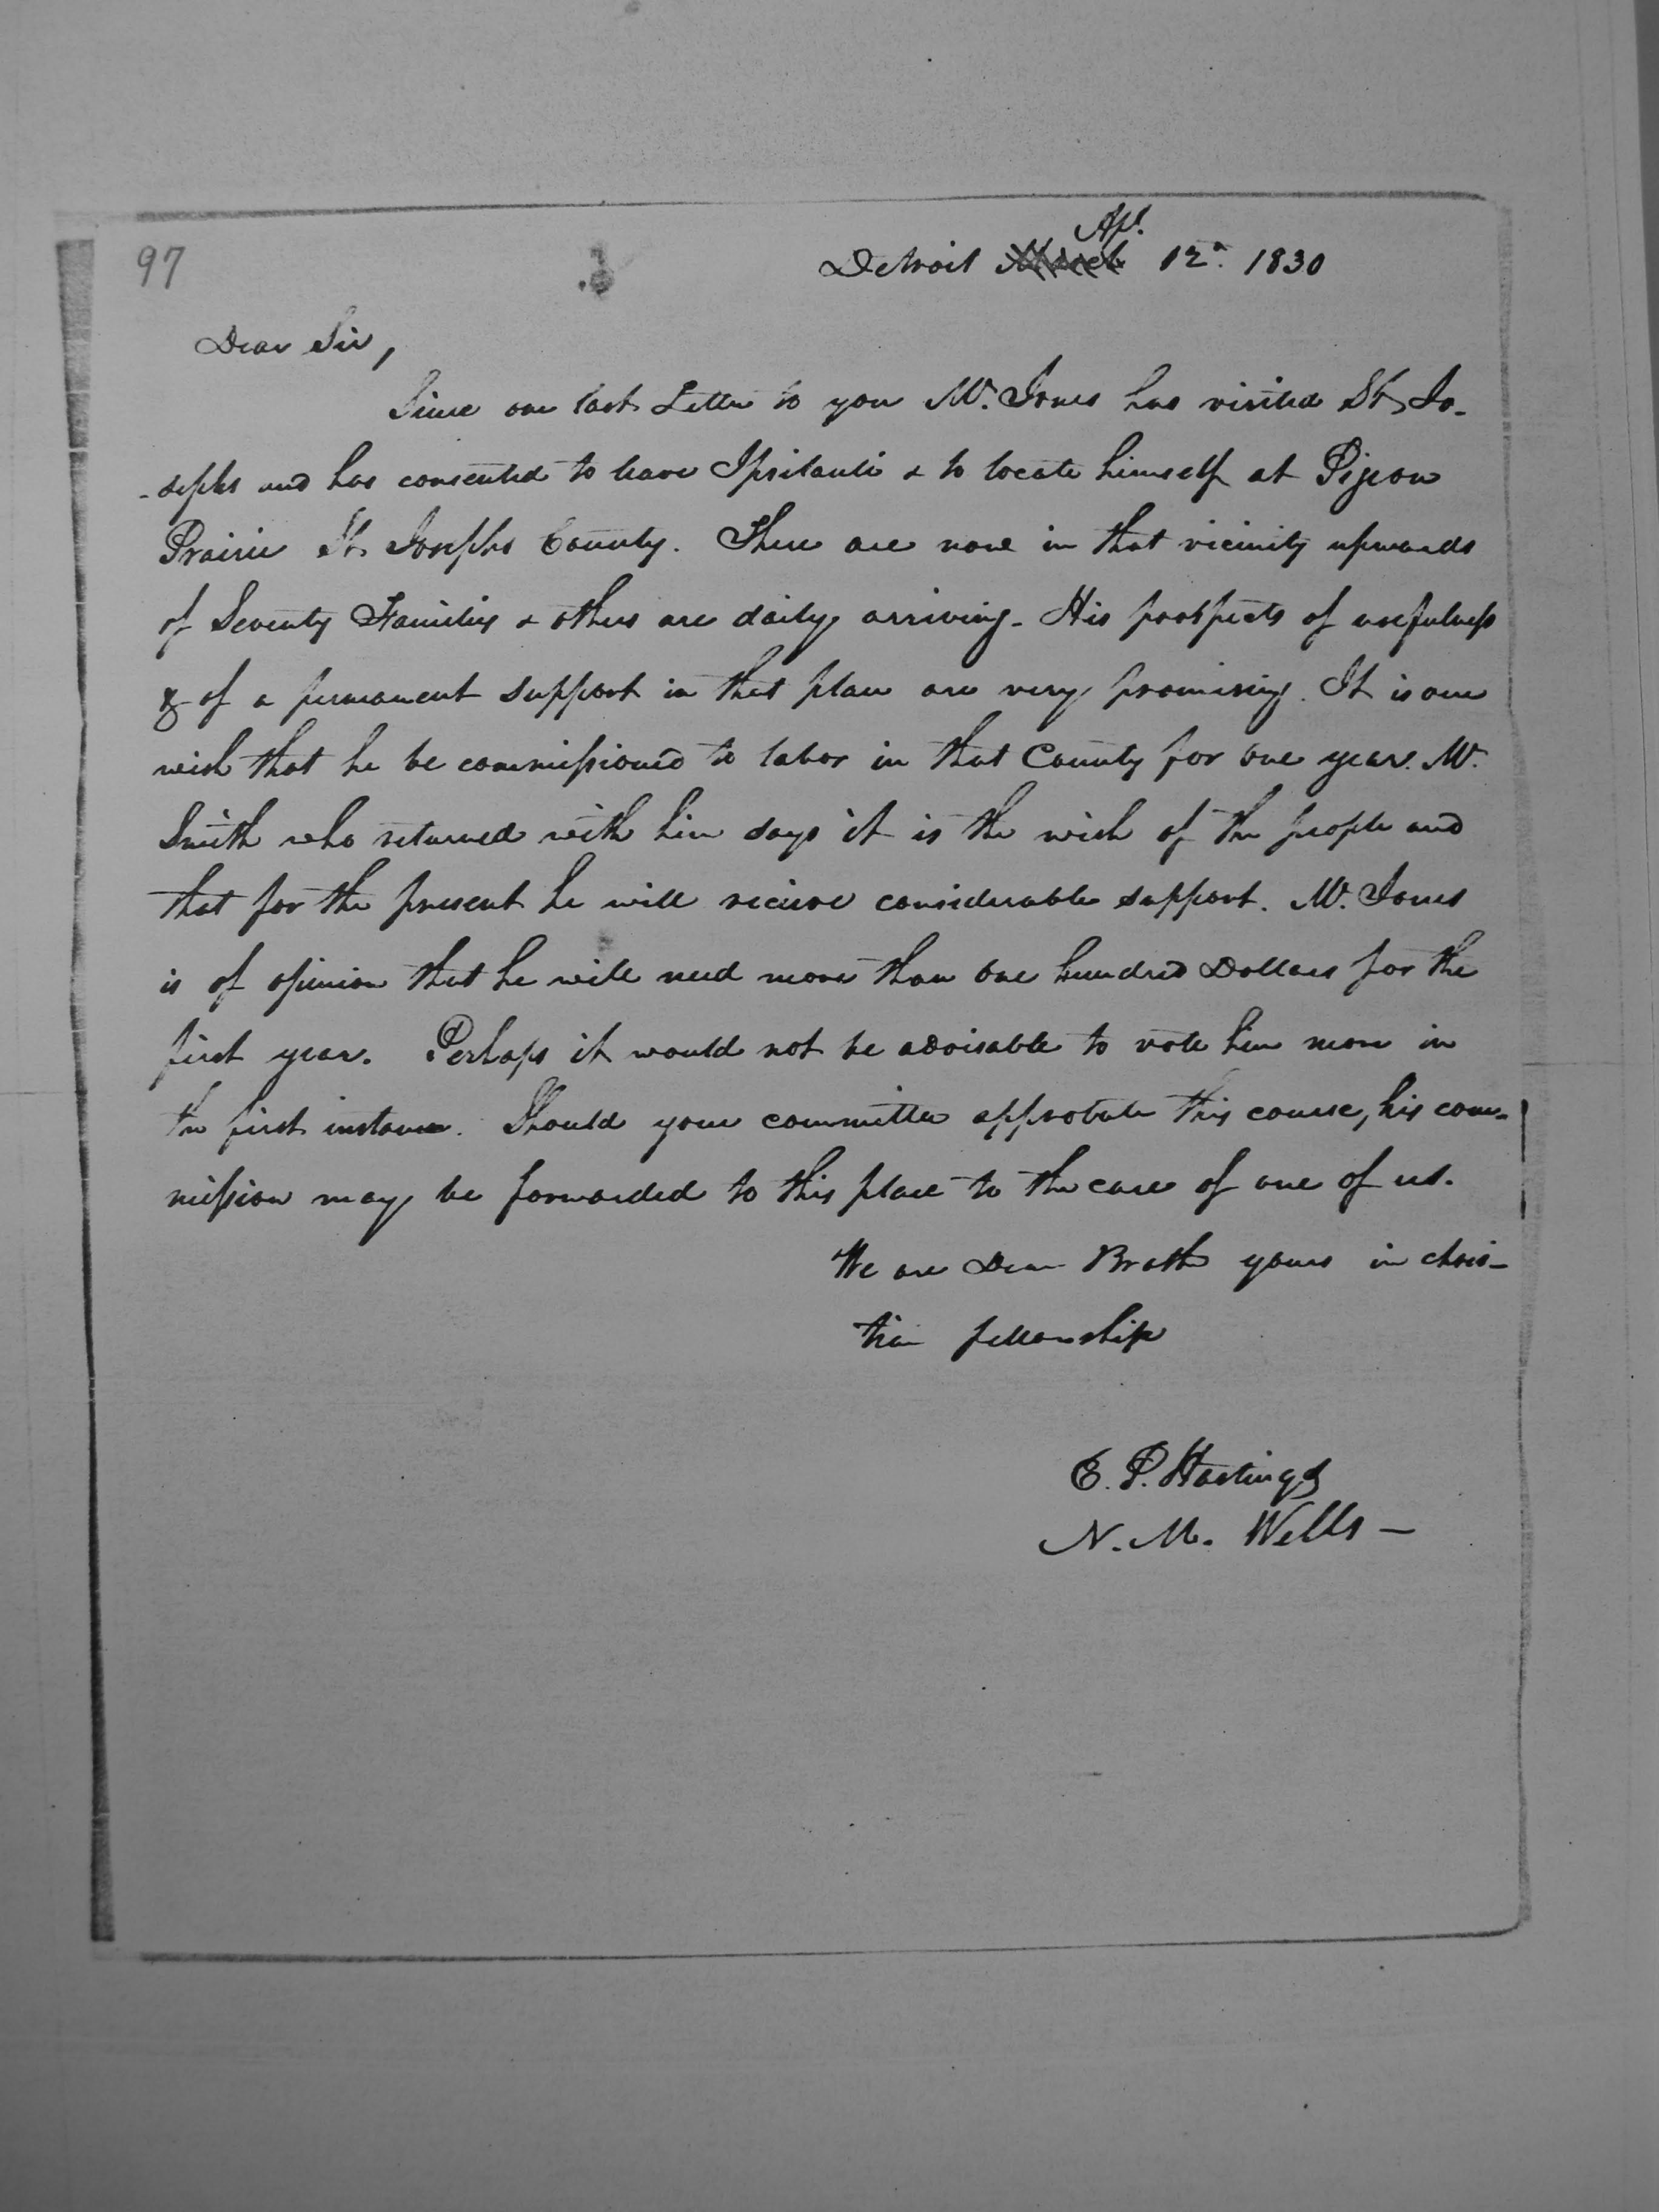 97
Apl.
Detroit March 12th 1830
Dear Sir,
Since our last Letter to you Mr. Jones has visited St. Jo-
-sephs and has consented to leave Ipsilanti & to locate himself at Pigeon
Prairie St. Josephs County. There are now in that vicinity upwards
of Seventy Families & others are daily arriving. His prospects of usefulness
& of a permanent support in that place are very promising. It is our
wish that he be commissioned to labor in that County for one year. Mr.
Smith who returned with him says it is the wish of the people and
that for the present he will recieve considerable support. Mr. Jones
is of opinion that he will need more than one hundred Dollars for the
first year. Perhaps it would not be advisable to vote him more in
the first instance. Should your committee approbate this course, his com-
mission may be forwarded to this place to the care of one of us.
We are Dear Brother yours in chris-
tian fellowship
E. P. Hastings
N. M. Wells —